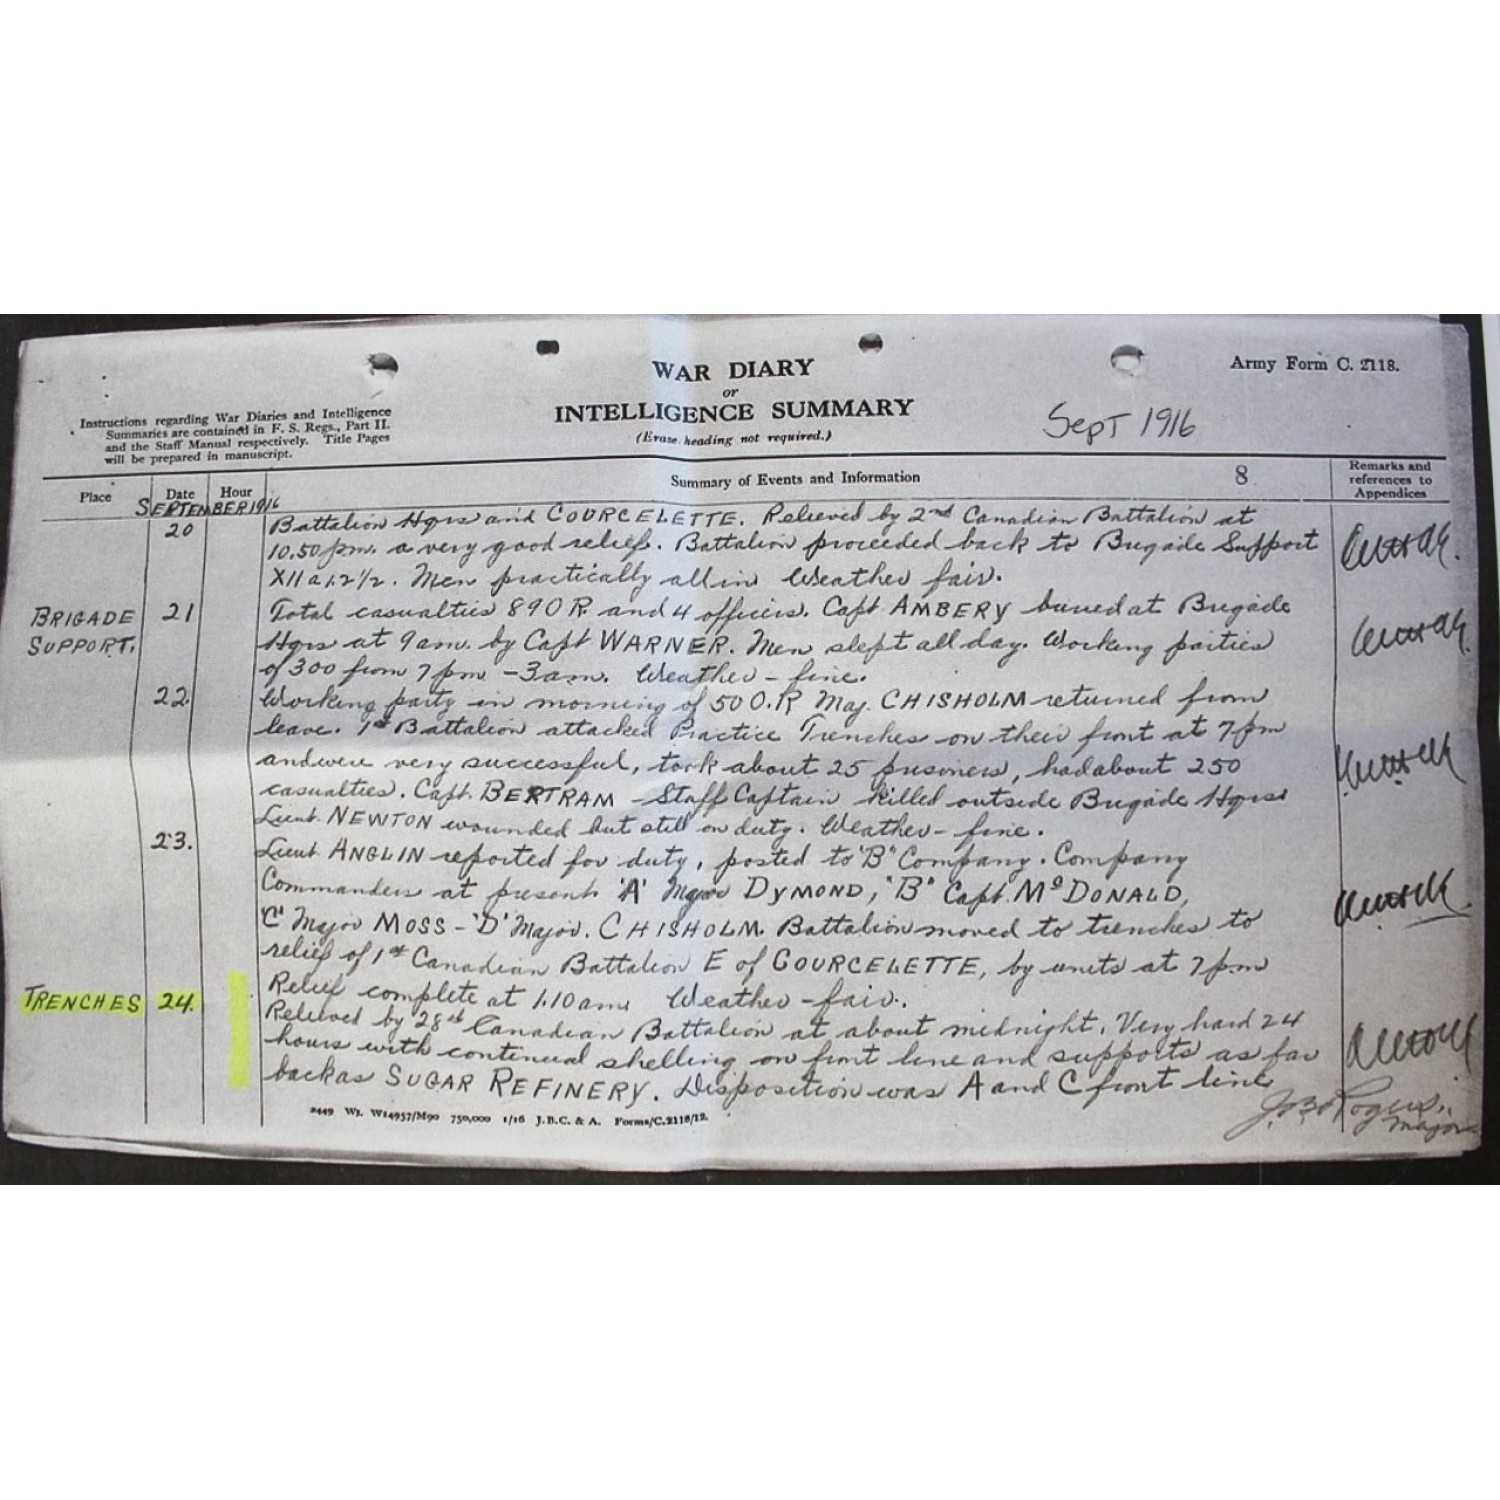 WAR DIARY
or
INTELLIGENCE SUMMARY
(Erase heading not required.)
Army Form C. 2118.
Instructions regarding War Diaries and Intelligence
Summaries are contained in F. S. Regs., Part II.
and the Staff Manual respectively. Title Pages
will be prepared in manuscript.
Sept 1916
Place Date Hour Summary of Events and Information 8 Remarks and references to Appendices
SEPTEMBER 1916
20 Battalion Hqrs and COURCELETTE. Relieved by 2nd Canadian Battalion at
10.50 pm. a very good relief. Battalion proceeded back to Brigade Support
X11 a 1.2½. Men practically all in Weather fair.
BRIGADE SUPPORT. 21 Total casualties 89 O.R. and 4 officers. Capt AMBERY buried at Brigade
Hqrs at 9 am. by Capt WARNER. Men slept all day. Working parties
of 300 from 7 pm - 3 am. Weather - fine.
22. Working party in morning of 50 O.R Maj. CHISHOLM returned from
leave. 1st Battalion attacked Practice Trenches on their front at 7 pm
and were very successful, took about 25 prisoners, had about 250
casualties. Capt. BERTRAM - Staff Captain killed outside Brigade Hqrs
Lieut. NEWTON wounded but still on duty. Weather - fine.
23. Lieut ANGLIN reported for duty, posted to "B" Company. Company
Commanders at present 'A' Major DYMOND, "B" Capt. McDONALD,
'C' Major MOSS - 'D' Major. CHISHOLM. Battalion moved to trenches to
relief of 1st Canadian Battalion E of COURCELETTE, by units at 7 pm
Relief complete at 1.10 am. Weather - fair.
TRENCHES 24. Relieved by 28th Canadian Battalion at about midnight. Very hard 24
hours with continual shelling on front line and supports as far
back as SUGAR REFINERY. Disposition was A and C front line
2449 Wt. W14957/M90 750,000 1/16 J.B.C. & A. Forms/C.2118/12.
Rogers.
Major